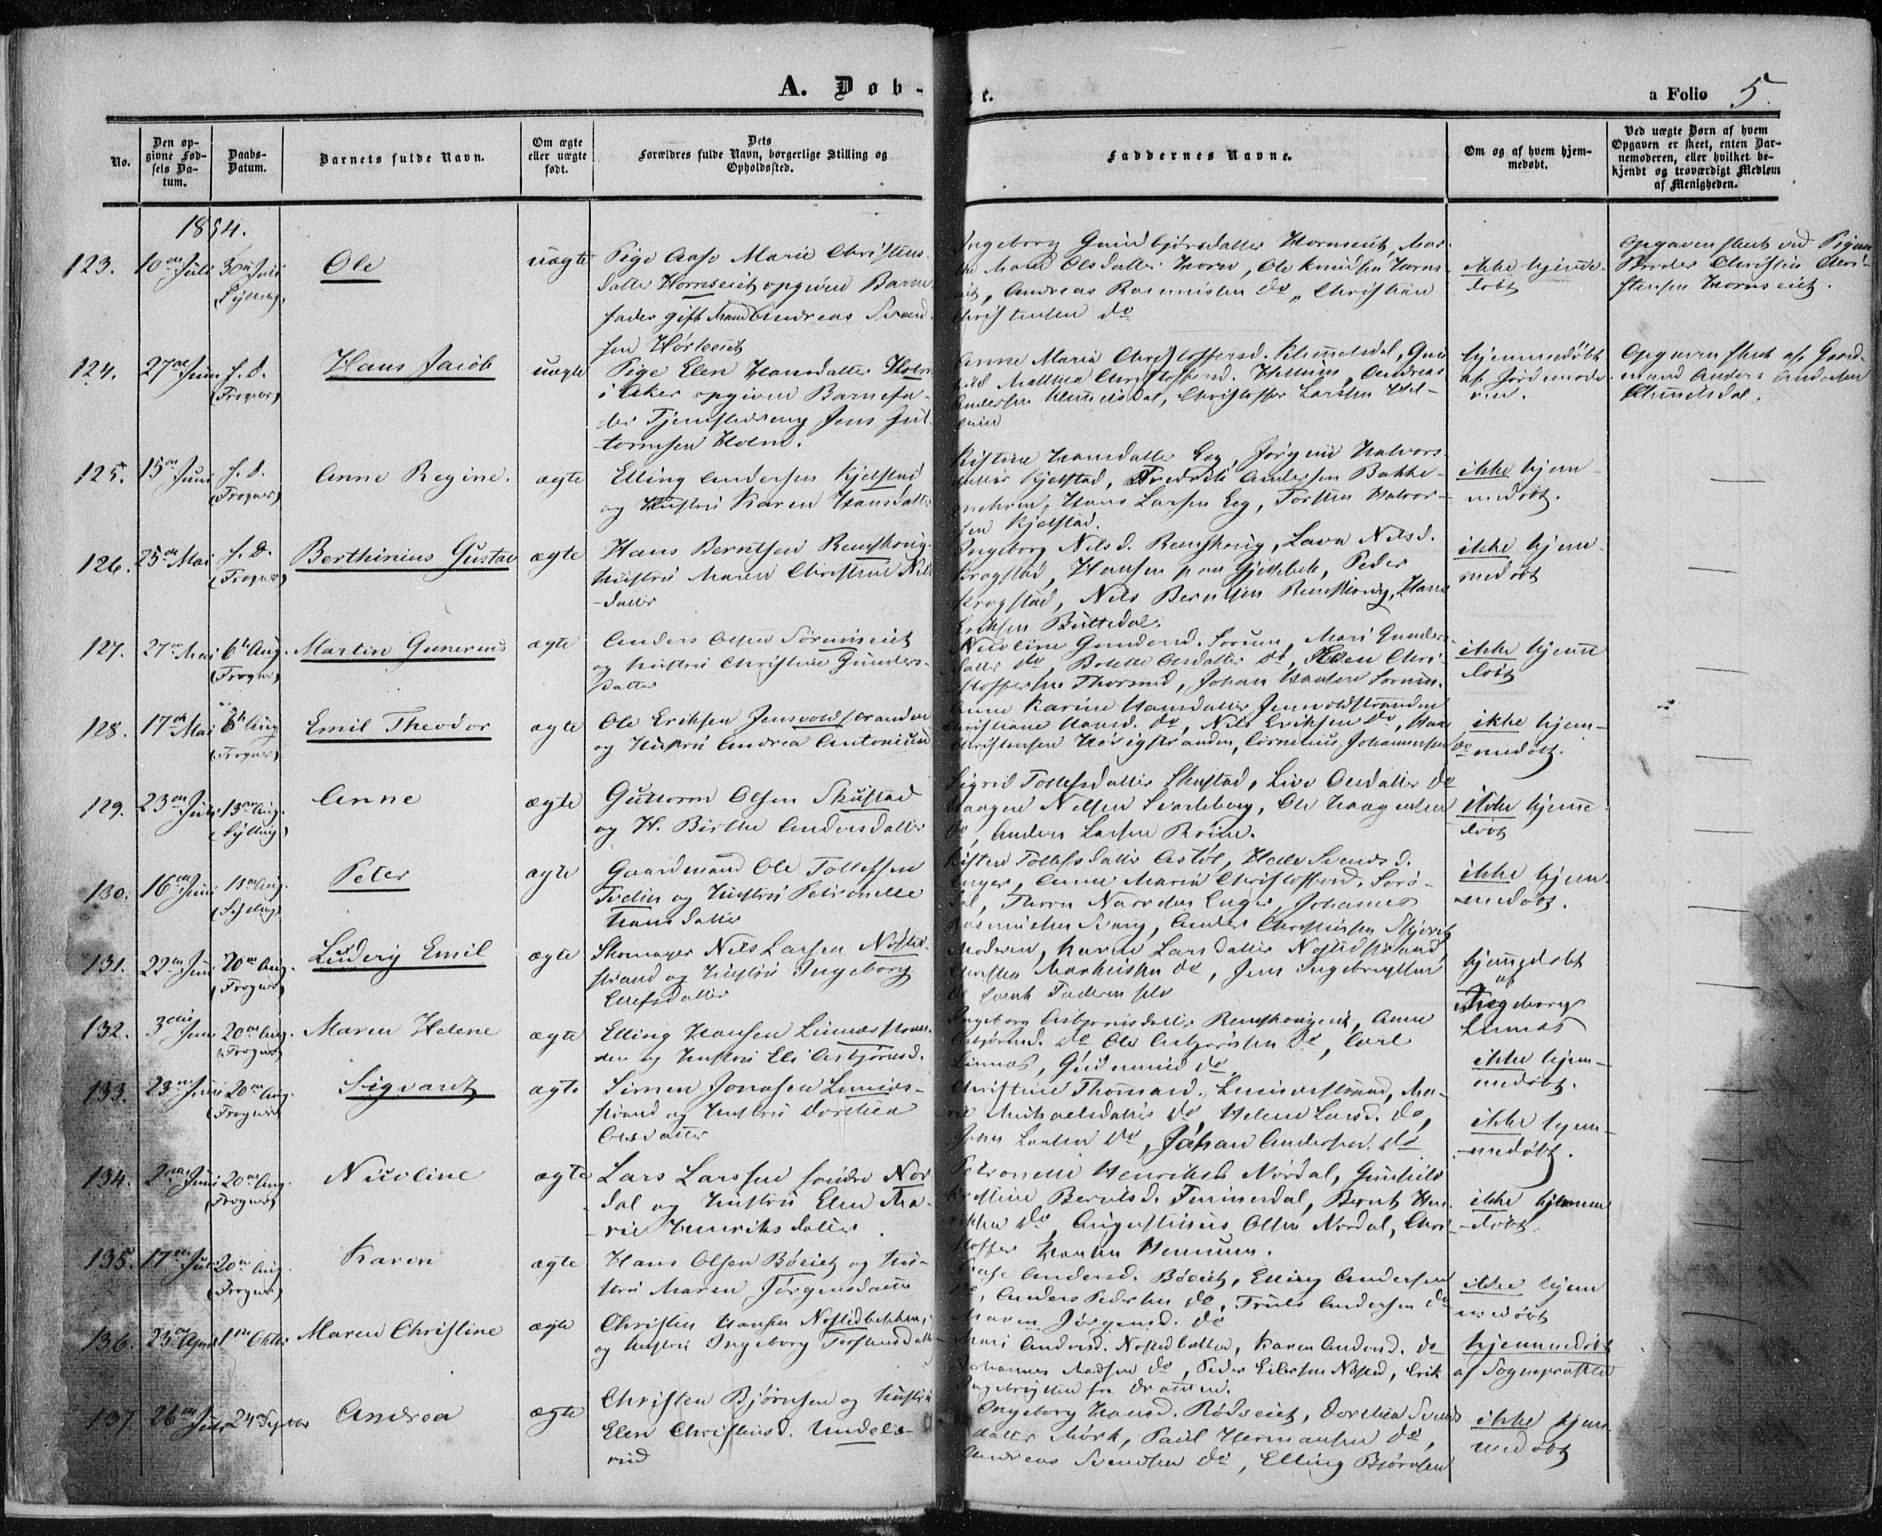 A. Døb-
te.
a Folio 5.
No.
Den op-
givne Fød-
sels Da-
tum.
Daabs-
Datum.
Barnets fulde Navn.
Om ægte
eller uægte
født.
Dets
Forældres fulde Navn, borgerlige Stilling og
Opholdssted.
Faddernes Navne.
Om og af hvem hjem-
medøbt.
Ved uægte Børn af hvem
Opgaven er skeet, enten Bar-
nemoderen, eller hvilket be-
kjendt og troværdigt Medlem
af Menigheden.
1854.
123.
10de Juli
30te Juli
(Sylling)
Ole
uægte
Pige Aase Marie Christens-
datter Hornseiet opgiven Barne
fader gift Mand Andreas Svend-
sen
Ingeborg Gunbjørsdatter Hornseiet, Mar-
the Marie Olsdatter Horn, Ole Knudsen Horns-
eiet, Andreas Rasmussen do, Christian
Christensen do
ikke hjemme-
døbt
Opgaven skeet ved Pigens
Broder Christen Chri-
stensen Hornseiet.
124.
27de Juni
s. D.
(Frogner)
Hans Jacob
uægte
Pige Elen Hansdatter Holm
i Aker opgiven Barnefa-
der Tjenestedreng Jens Gut-
tormsen Holm.
Anne Maria Christoffersd.
Mathea Christoffersd. Andreas
Andersen Christoffer Larsen
hjemmedøbt
af Jordemode-
ren.
Opgaven skeet af Gaard-
mand Anders Andersen
125.
15de Juni
s. D.
(Frogner)
Anne Regine.
ægte
Elling Andersen Kjelstad
og Hustru Karen Hansdatter
Kistine Hansdatter Eeg, Jørgine Halvors-
datter Kjelstad, Fredrik Andersen Bakke-
Hans Larsen Eeg, Torsten Halvor-
sen Kjelstad.
ikke hjem-
medøbt.
126.
25de Mai
s. D.
(Frogner)
Berthinius Gustav
ægte
Hans Berntsen Renskoug
Hustru Maren Christine Nils
-datter
Ingeborg Nilsd. Renskoug, Lava Nilsd.
Krogstad, Hansen paa Gjellebek, Peder
Krogstad, Nils Berntsen Renskoug, Hans
Eriksen Büttedal.
ikke hjem-
medøbt
127.
27de Mai
6te Aug.
(Frogner)
Martin Gunerius
ægte
Anders Olsen Sørumseiet
og Hustru Christine Gunders-
datter
Nicoline Gundersd. Sørum, Mari Gunders-
datter do, Bolette Olsdatter do, Chri-
stoffersen Johan Hansen Sørum.
ikke hjemme
døbt
128.
17de Mai
6te Aug
(Frogner)
Emil Theodor
ægte
Ole Eriksen Jensvoldstranden
og Hustru Andrea
Anne Karine Hansdatter Jensvoldstranden
Christiane Hansd. do, Nils Eriksen do, Hans
Christensen Cornelius Johannesen do
ikke hjem-
medøbt.
129.
23de Juli
13de Aug.
(Sylling)
Anne
ægte
Guttorm Olsen Skustad
og H. Birthe Andersdatter
Sigrid Tollefsdatter Skustad, Live Olsdatter do
Haagen Nilsen Svarteborg, Ole Haagensen
do, Anders Larsen
ikke hjemme-
døbt
130.
16de Juni
13de Aug.
(Sylling)
Peter
ægte
Gaardmand Ole Tollefsen
og Hustru Petronelle
Hansdatter
Kisten Tollefsdatter Helle Svensd.
Enger, Anne Maria Christoffersd. Sørs-
dal, Johannes
Rasmussen Anders Christensen
ikke hjem-
medøbt.
131.
22de Juni
20de Aug.
(Frogner)
Ludvig Emil
ægte
Skomager Nils Larsen Nøsted-
strand og Hustru Ingeborg
Ellefsdatter
Moderen, Karen Larsdatter Nøstedstrand,
Christen do, Jens Ingebregtsen
do samt Faderen selv
hjemmedøbt
af
Ingeborg
Linnæs
132.
3die Juni
20de Aug.
(Frogner)
Maren Helene
ægte
Elling Hansen Linnæsstran-
den og Hustru Eli Asbjørnsd.
Ingeborg Asbjørnsdatter Renskougeiet, Anne
Asbjørnsd. do Ole Asbjørnsen do, Carl
Linnæs, Gudmund do
ikke hjem-
medøbt.
133.
23de Juni
20de Aug.
(Frogner)
Sigvardt
ægte
Simen Jonasen Linnæs-
strand og Hustru Dorthea
Olsdatter
Christine Thomasd. Linnæsstrand, Ma-
rie Michaelsdatter do, Helene Larsd. do,
do, Johan Andersen do
ikke hjem-
medøbt.
134.
2den Juni
20de Aug.
(Frogner)
Nicoline
ægte
Lars Larssen søndre Nor
dal og Hustru Elen Ma-
rie Henriksdatter.
Petronelle Henriksd. Nordal, Gunhild
Kistine Berntsd. Bernt Hen-
riksen do, Augustinus Olsen Nordal, Chri-
stoffer Hansen Hennum.
ikke hjemme
-døbt.
135.
17de Juli
20de Aug.
(Frogner)
Karen
ægte
Hans Olsen Böeiet og Hu-
stru Maren Jørgensdatter
Aase Andersd. Böeiet, Elling Andersen
do, Anders Pedersen do, Truls Andersen do
Maren Jørgensd. do
ikke hjem
medøbt
136.
23de April
1ste Oktbr
Maren Christine
ægte
Christen Hansen Nøstedbakken,
og Hustru Ingeborg Torstensdatter
Mari Andersd. Nøstedbakken, Karen Andersd. do
Johannes Madsen do, Peder Eilertsen Nøsted, Erik
Ingebrigtsen fra Drammen.
hjemmedøbt
af Sognepræsten
137.
26de Juli
24 Septbr
Andrea
ægte
Christen Bjørnsen og Hustru
Elen Christensd. Undels-
rud
Ingeborg Hansd. Rødseiet, Dorthea Svends
datter Mørk, Paul Hermansen do,
Andreas Svendsen do, Elling Bjørnsen
ikke hjem
medøbt